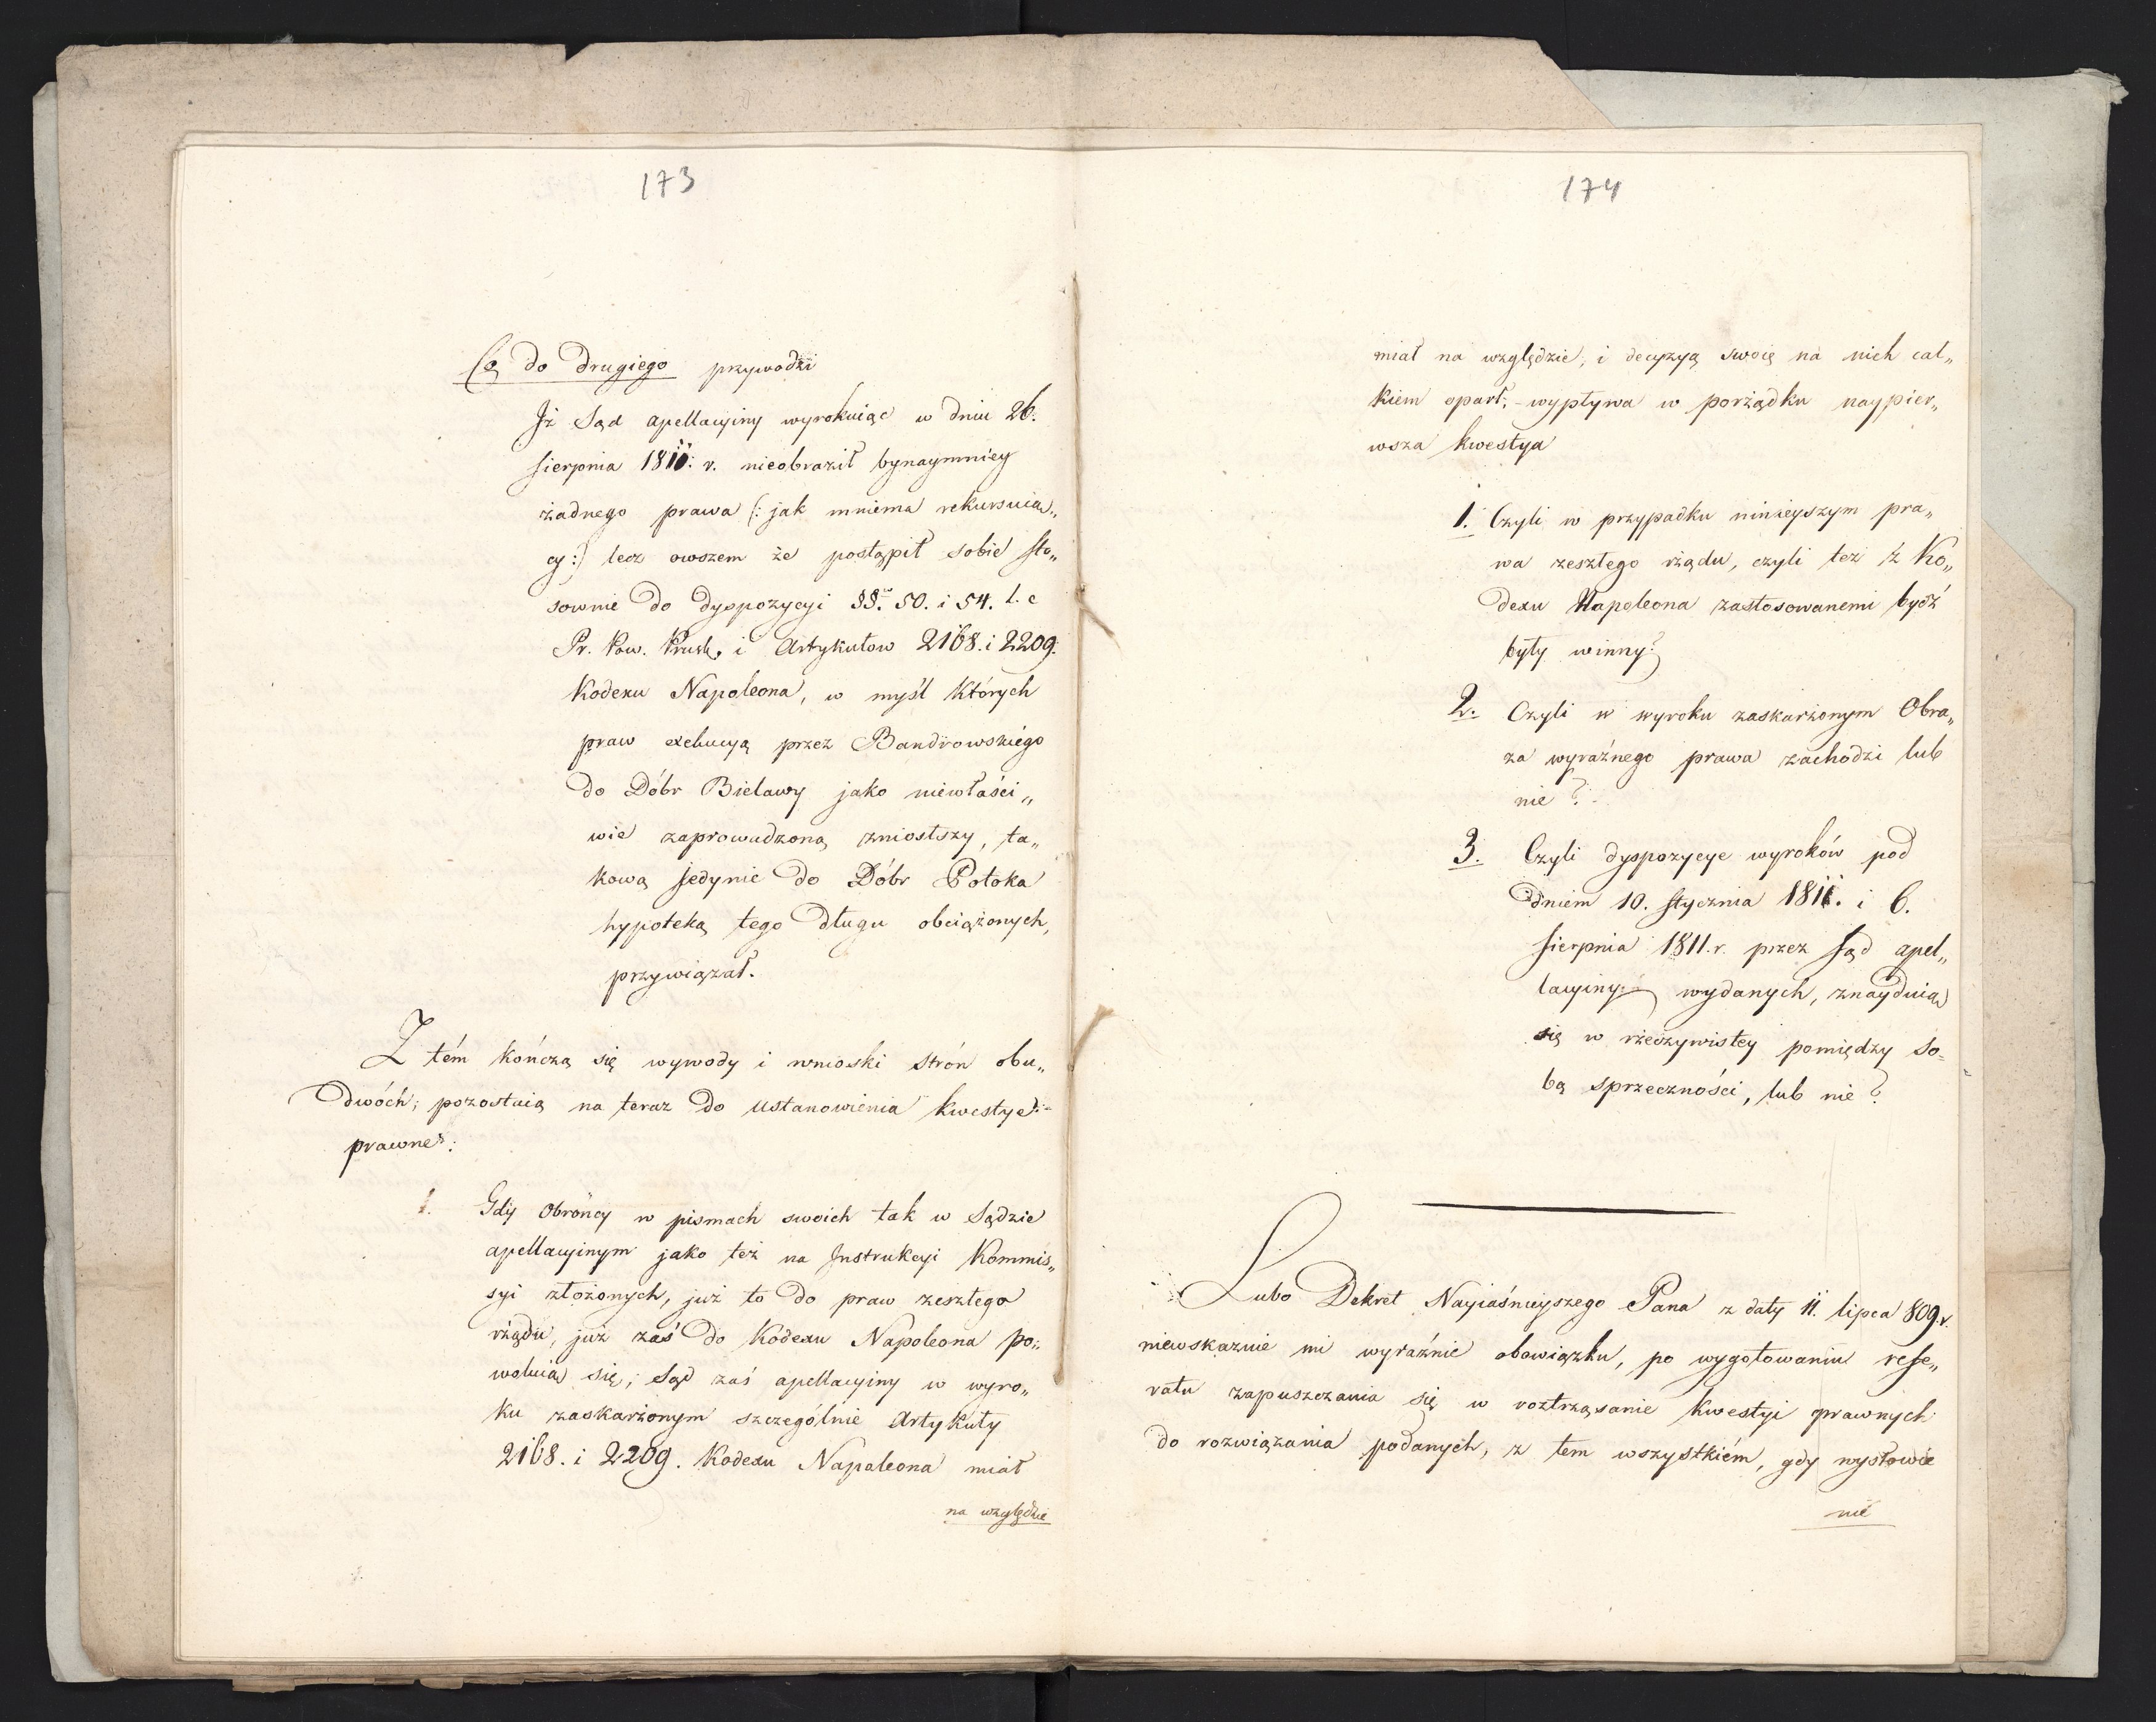 173
Co do drugiego przywodzi
Iż Sąd apellacyiny wyrokuiąc w dniu 26.
sierpnia 1811. r. nieobraził bynaymniey
żadnego prawa (: jak mniema rekursuią„
cy :) lecz owszem że postąpił sobie sto„
sownie do dyspozycyi §§. 50. i 54. l. c
Pr. Pow. Prusk. i Artykułow 2168. i 2209.
Kodexu Napoleona, w myśl których
praw exekucyą przez Bandrowskiego
do Dóbr Bielawy jako niewłaści„
wie zaprowadzoną zniosłszy, ta„
kową jedynie do Dóbr Potoka
hypoteką tego długu obciążonych,
przywiązał.
Z tém kończą się wywody i wnioski strón obu„
dwóch; pozostaią na teraz do ustanowienia kwestye
prawne:
1. Gdy Obróncy w pismach swoich tak w Sądzie
apellacyinym jako też na Instrukcyi Kommis„
syi złożonych, już to do praw zeszłego
rządu, już zaś do Kodexu Napoleona po„
wołuią się; Sąd zaś apellacyiny w wyro„
ku zaskarżonym szczególnie Artykuły
2168. i 2209. Kodexu Napoleona miał
na względzie
174
miał na względzie, i decyzyą swoię na nich cał„
kiem oparł; - wypływa w porządku naypier„
wsza kwestya
1. Czyli w przypadku ninieyszym pra„
wa zeszłego rządu, czyli też z Ko„
dexu Napoleona zastosowanemi bydź
były winny?
2. Czyli w wyroku zaskarżonym Obra„
za wyraźnego prawa zachodzi lub
nie?
3. Czyli dyspozycye wyroków pod
dniem 10. stycznia 1811. i 6.
sierpnia 1811. r. przez Sąd apel„
lacyiny wydanych, znayduią
się w rzeczywistey pomiędzy so=
bą sprzeczności, lub nie?
Lubo Dekret Nayiaśnieyszego Pana z daty 11. lipca 809. r.
niewskazuie mi wyraźnie obowiązku, po wygotowaniu refe„
ratu zapuszczania się w roztrząsanie kwestyi prawnych
do rozwiązania podanych, z tem wszystkiém, gdy wysłowie
nie